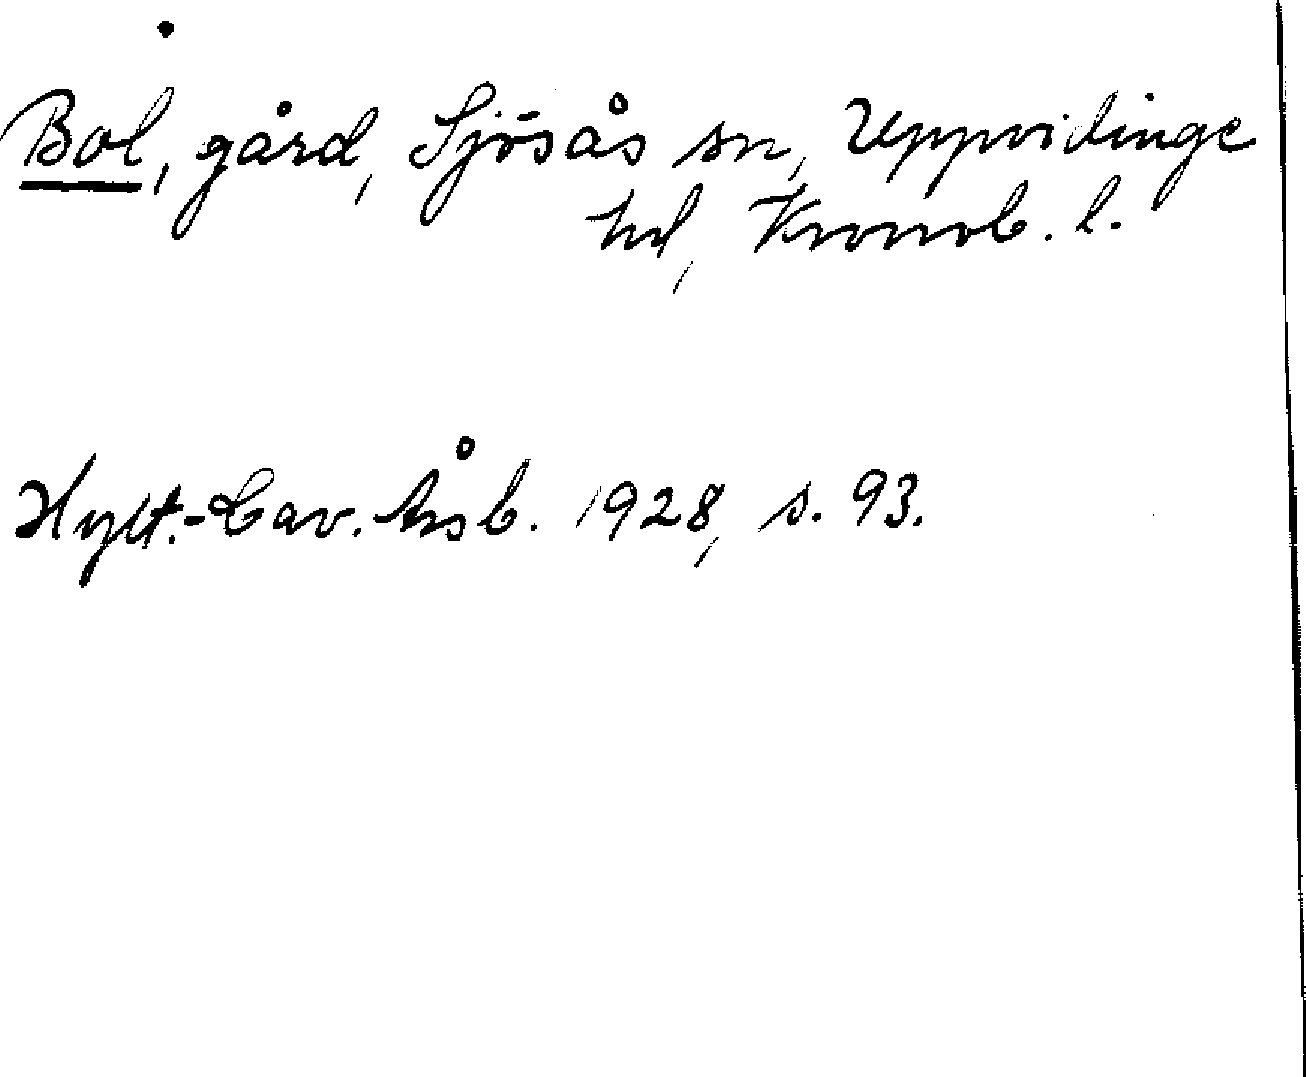 Bol, gård, Sjösås sn, Uppvidinge
hd, Kronob. l.
Hylt.-Cav. årsb. 1928, s. 93.